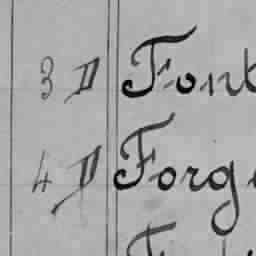 3 D Font
4 D Forg